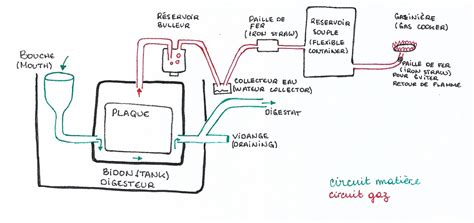 BOUCHE
(MOUTH)
PLAQUE
BIDON (TANK)
DIGESTEUR
RÉSERVOIR
BULLEUR
COLLECTEUR EAU
(WATEUR COLLECTOR)
DIGESTAT
VIDANGE
(DRAINING)
PAILLE DE
FER
(IRON STRAW)
RESERVOIR
SOUPLE
(FLEXIBLE
CONTAINER)
GAZINIÈRE
(GAS COOKER)
PAILLE DE FER
(IRON STRAW)
POUR ÉVITER
RETOUR DE FLAMME
circuit matière
circuit gaz